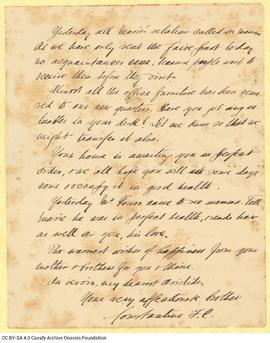 Yesterday all Marie's relations called on mamma.
As we have only sent the faire part today
no acquaintances came, because people wait to
receive them before they visit.
Almost all the office furniture has been
removed to our new quarters. Have you got any
in your desk? Let me know so that we
might transfer it also.
Your home is awaiting you in perfect
order, & we all hope you will some day
soon reoccupy it in good health.
Yesterday Mr came to see mamma. Tell
Marie he was in perfect health, & sends her
as well as you, his love.
The warmest wishes of happiness from your
mother & brothers for you & Marie.
Au revoir, my dearest Aristides,
Your very affectionate brother
Constantine F. C.
CC BY-SA 4.0 Cavafy Archive Onassis Foundation